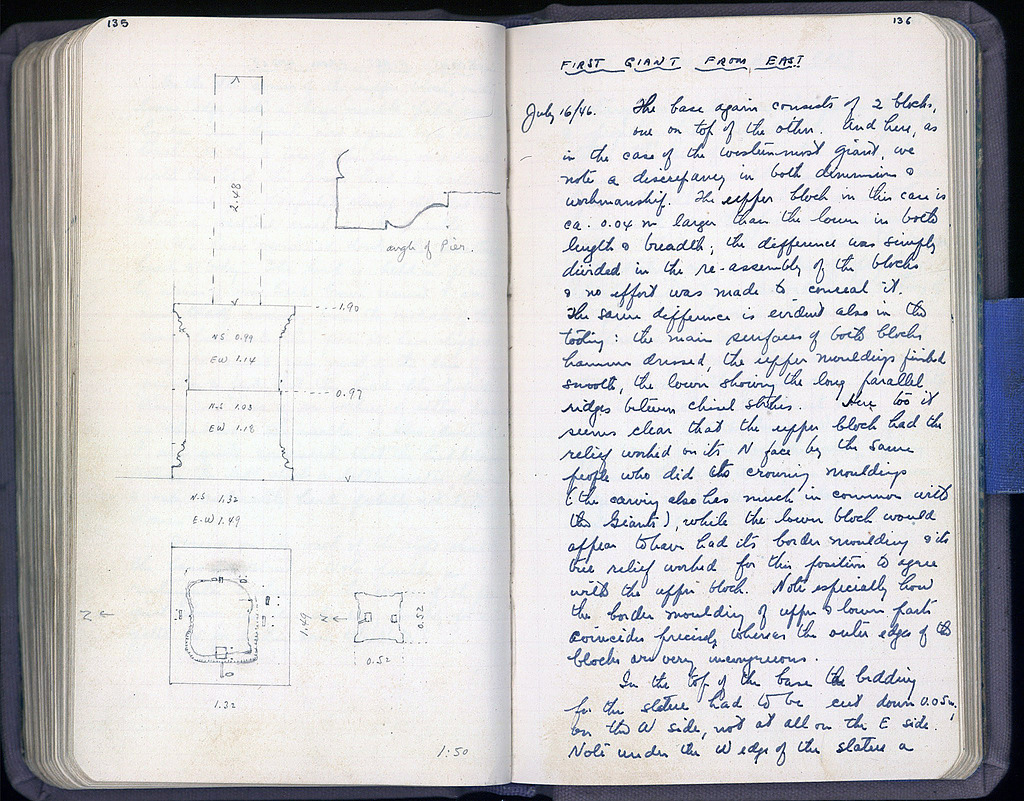 135
2.48
angle of Pier.
1.90
N S 0.99
EW 1.14
0.97
N-S 1.03
EW 1.18
N.S 1.32
E-W 1.49
N
1.49
N
0.52
0.52
1.32
1:50
136
FIRST GIANT FROM EAST
July 16/46. The base again consists of 2 blocks,
one on top of the other. And here, as
in the case of the westernmost giant, we
note a discrepancy in both dimensions &
workmanship. The upper block in this case is
ca. 0.04 m larger than the lower in both
length & breadth; the difference was simply
divided in the re-assembly of the blocks
& no effort was made to conceal it.
The same difference is evident also in the
tooling: the main surfaces of both blocks
hammer dressed, the upper mouldings finished
smooth, the lower showing the long parallel
ridges between chisel strokes. Here too it
seems clear that the upper block had the
relief worked on its N face by the same
people who did its crowning mouldings
(the carving also has much in common with
the Giants), while the lower block would
appear to have had its border moulding & its
tree relief worked for this position to agree
with the upper block. Note especially how
the border moulding of upper & lower parts
coincides precisely whereas the outer edges of the
blocks are very incongruous.
In the top of the base the bedding
for the statue had to be cut down 0.05m,
on the W side, not at all on the E side.
Note under the W edge of the statue a